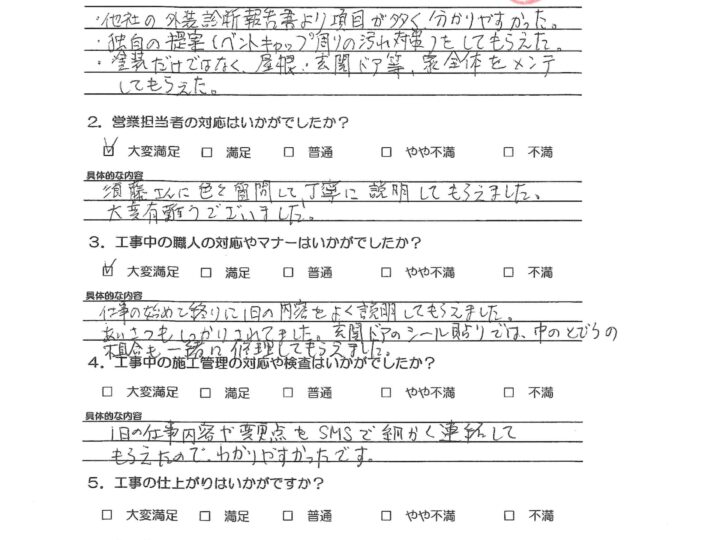 ・他社の外装診断報告書より項目が多く分かりやすかった。
・独自の提案(ベントキャップ周りの汚れ対策)をしてもらえた。
・塗装だけではなく、屋根、玄関ドア等、家全体をメンテ
してもらえた。
2．営業担当者の対応はいかがでしたか？
☑ 大変満足 □ 満足 □ 普通 □ やや不満 □ 不満
具体的な内容
須藤さんに色々質問して丁寧に説明してもらえました。
大変有難うございました。
3．工事中の職人の対応やマナーはいかがでしたか？
☑ 大変満足 □ 満足 □ 普通 □ やや不満 □ 不満
具体的な内容
仕事の始めと終りに1日の内容をよく説明してもらえました。
あいさつもしっかりされてました。玄関ドアのシール貼りでは、中のとびらの
不具合も一緒に修理してもらえました。
4．工事中の施工管理の対応や検査はいかがでしたか？
□ 大変満足 □ 満足 □ 普通 □ やや不満 □ 不満
具体的な内容
1日の仕事内容や変更点もSMSで細かく連絡して
もらえたので、わかりやすかったです。
5．工事の仕上がりはいかがですか？
□ 大変満足 □ 満足 □ 普通 □ やや不満 □ 不満